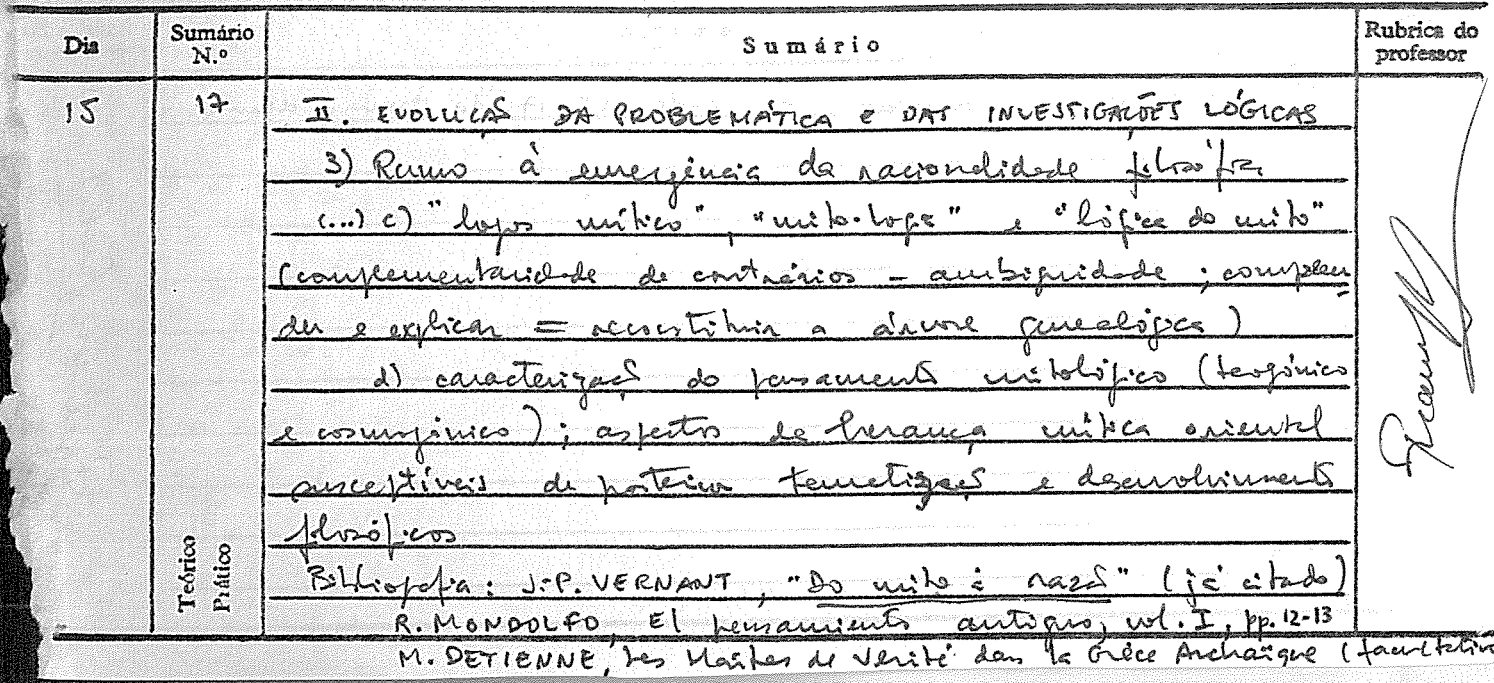 Dia
Sumário N.º
Sumário
Rubrica do professor
15
17
II. EVOLUÇÃO DA PROBLEMÁTICA e DAS INVESTIGAÇÕES LÓGICAS
3) Rumo à emergência da racionalidade filosófica
(...) c) "logos mítico", "mito-logia" e "lógica do mito"
(complementaridade de contrários - ambiguidade; compreen
der e explicar = reconstituir a árvore genealógica)
d) caracterização do pensamento mitológico (teogónico
e cosmogónico); aspectos da herança mítica oriental
susceptíveis de posterior tematização e desenvolvimento
filosóficos
Teórico
Prático
Bibliografia: J.-P. VERNANT, "Do mito à razão" (já citado)
R. MONDOLFO, El pensamiento antiguo, vol. I, pp. 12-13
M. DETIENNE, Les Maîtres de Vérité dans la Grèce Archaïque (facultativo